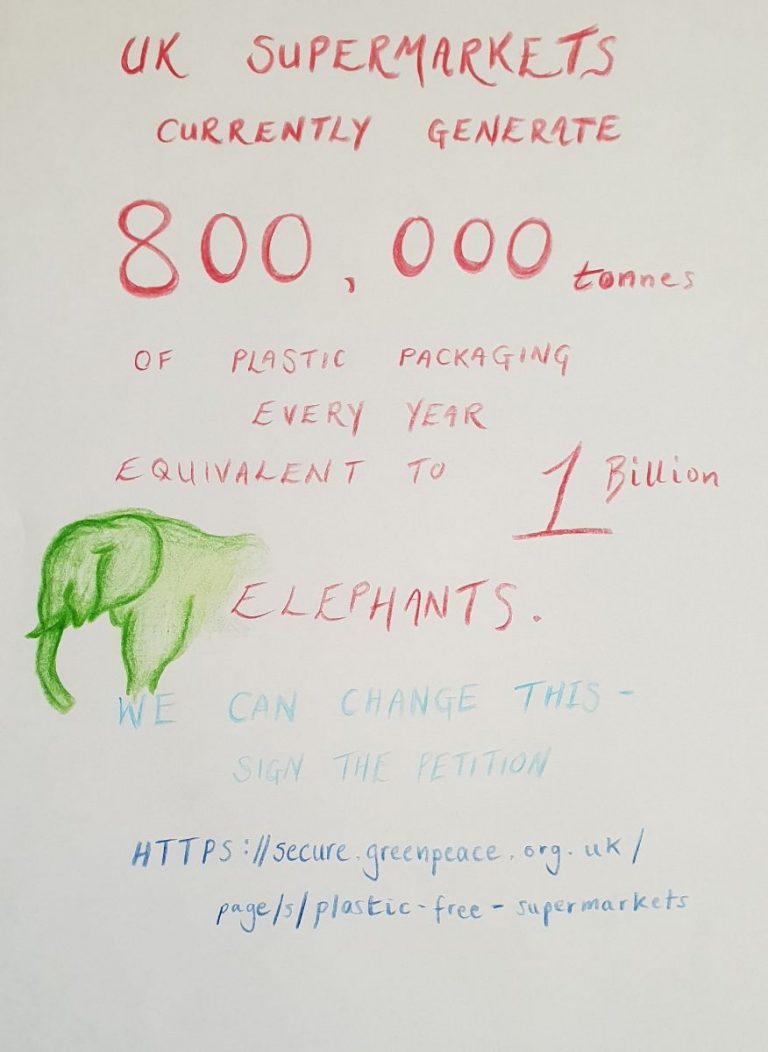 UK SUPERMARKETS
CURRENTLY GENERATE
800,000 tonnes
OF PLASTIC PACKAGING
EVERY YEAR
EQUIVALENT TO 1 Billion
ELEPHANTS.
WE CAN CHANGE THIS -
SIGN THE PETITION
HTTPS://secure.greenpeace.org.uk/
page/s/plastic-free-supermarkets